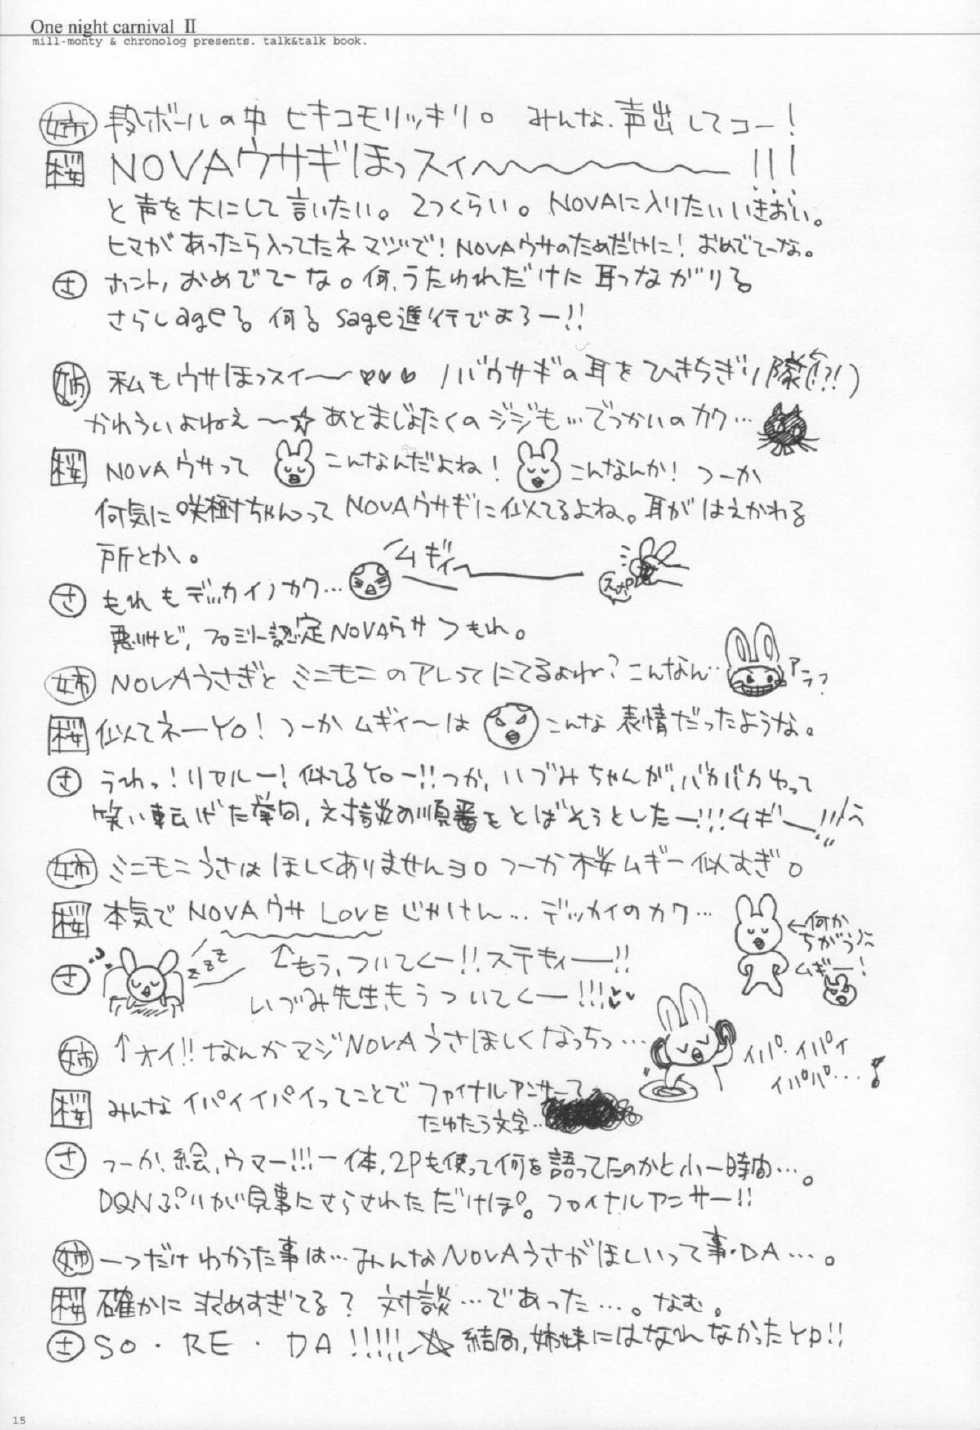 One night carnival Ⅱ
mill-monty & chronolog presents. talk&talk book.
姉 段ボールの中 ヒキコモリッキリ。 みんな、声出してコー!
桜 NOVAウサギほっスィ〜〜〜〜〜!!!
と声を大にして言いたい。2つくらい。NOVAに入りたいいきおい。
ヒマがあったら入ってたネ マヅで! NOVAウサのためだけに! おめでてーな。
さ ホント、おめでてーな。何、うたわれだけに耳つながりる
さらしageる 何る sage進行でよろー!!
姉 私もウサほっスィ〜〜♥♥♥ ノバウサギの耳をひきちぎり隊(!?!)
かわういよねえ〜☆ あとまじょたくのジジも…でっかいのカク…
桜 NOVAウサって こんなんだよね! こんなんか! つーか
何気に咲樹ちゃんって NOVAウサギに似てるよね。耳がはえかわる
所とか。
ムギィー
さ もれもデッカイノカク…
悪いけど、プロミトー認定NOVAウサつもれ。
姉 NOVAうさぎと ミニモニのアレってにてるよね? こんなん…
アラ?
桜 似てネーYO! つーか ムギィ〜は こんな表情だったような。
さ うわっ! リアルー! 似てるYOー!! つか、いづみちゃんが、バカバカゆって
笑い転げた挙句、対談の順番をとばそうとしたー!!! ムギー!!!
姉 ミニモニうさは ほしくありませんヨ。つーか 桜ムギー似すぎ。
桜 本気で NOVAウサ LOVE じゃけん… デッカイのカク…
←何か ちがう
ムギー!
さ zzz
↑もう、ついてくー!! ステキィー!!
いづみ先生、もうついてくー!!!♥♥
姉 ↑オイ!! なんかマジNOVAうさほしくなっちっ…
イパ・イパイ
イパパ…♪
桜 みんなイパイイパイってことで ファイナルアンサーて
たゆたう文字…
さ つーか、絵、ウマー!!! 一体、2Pも使って何を語ってたのかと小一時間…。
DQNぷりが見事にさらされただけぽ。ファイナルアンサー!!
姉 一つだけわかった事は…みんなNOVAうさがほしいって事・DA…。
桜 確かに求めすぎてる? 対談…であった…。なむ。
さ SO・RE・DA!!!!!☆ 結局、姉妹にはなれんなかったYP!!
15